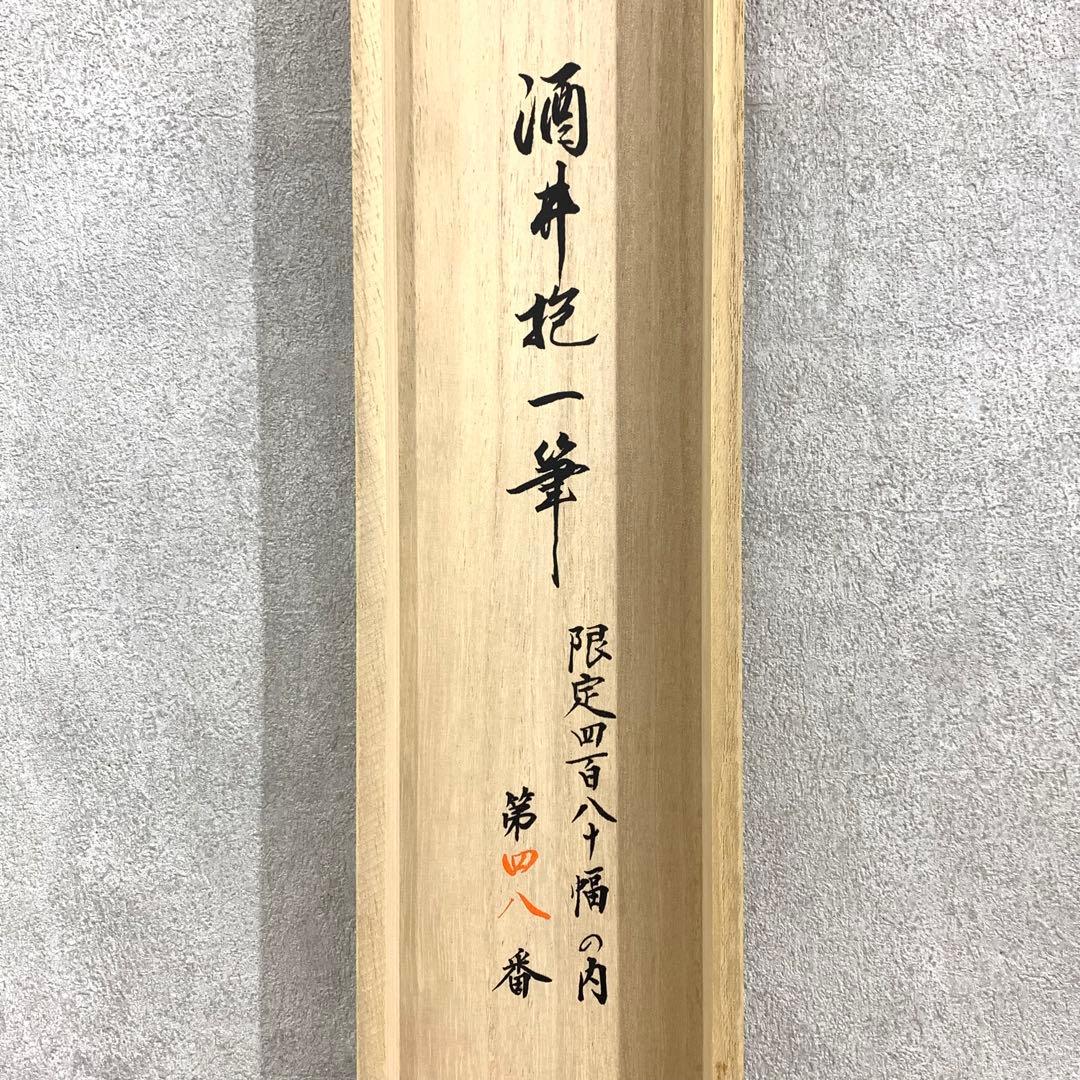 酒井抱一筆
限定四百八十幅の内
第四八番